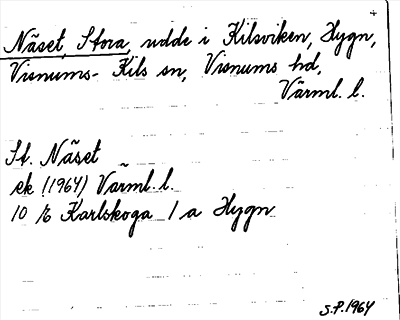 Näset, Stora, udde i Kilsviken, Hygn,
Visnums-Kils sn, Visnums hd,
Värml. l.
St. Näset
ek (1964) Värml. l.
10 Karlskoga 1 a Hygn
S.P. 1964